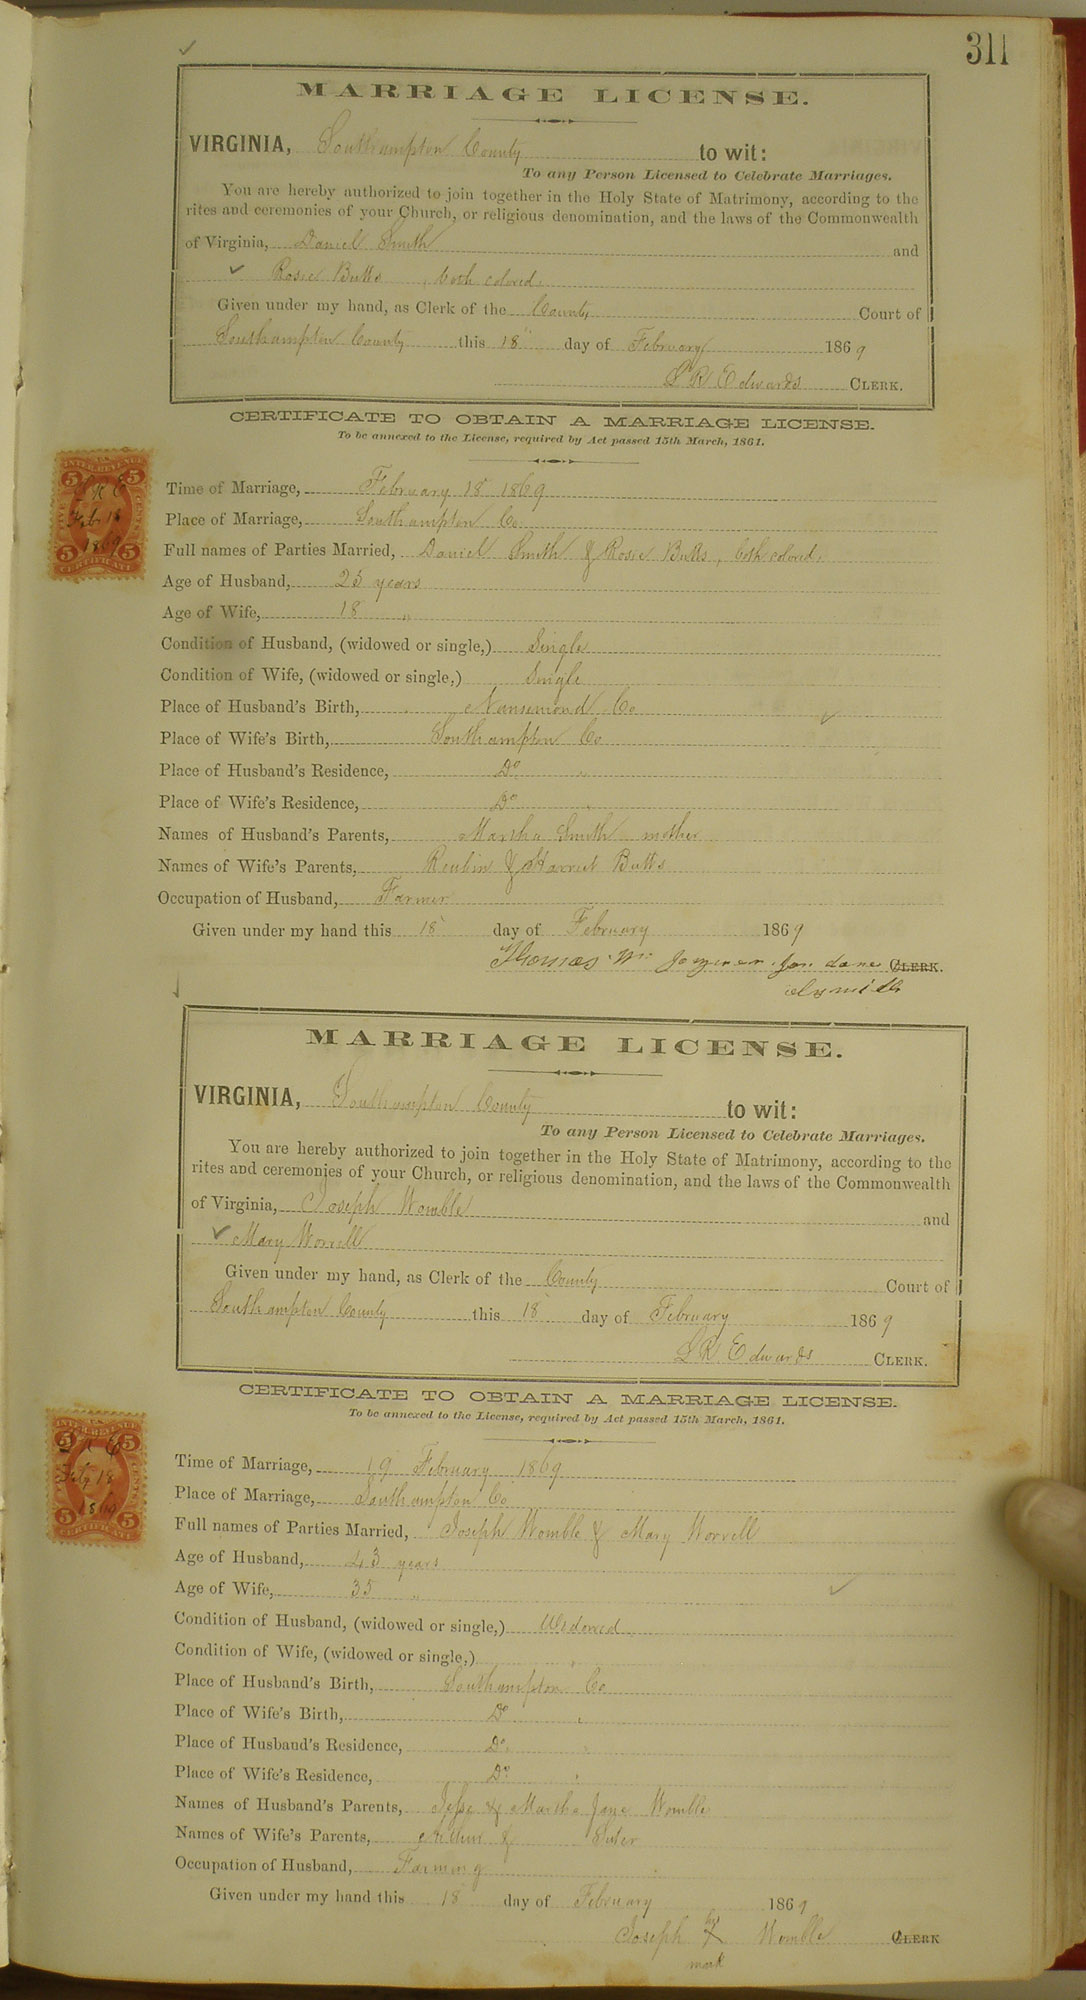 311
MARRIAGE LICENSE.
VIRGINIA, Southampton County to wit:
To any Person Licensed to Celebrate Marriages.
You are hereby authorized to join together in the Holy State of Matrimony, according to the
rites and ceremonies of your Church, or religious denomination, and the laws of the Commonwealth
of Virginia, Daniel Smith and
Rosie Butts, both colored.
Given under my hand, as Clerk of the County Court of
Southampton County this 18" day of February 1869
L R Edwards CLERK.
CERTIFICATE TO OBTAIN A MARRIAGE LICENSE.
To be annexed to the License, required by Act passed 15th March, 1861.
U.S. INTER. REVENUE
5 5
L R E
Feb 18
1869
FIVE CENTS
5 5
CERTIFICATE
Time of Marriage, February 18 1869
Place of Marriage, Southampton Co
Full names of Parties Married, Daniel Smith & Rosie Butts, both colored.
Age of Husband, 25 years
Age of Wife, 18 "
Condition of Husband, (widowed or single,) Single
Condition of Wife, (widowed or single,) Single
Place of Husband's Birth, Nansemond Co
Place of Wife's Birth, Southampton Co
Place of Husband's Residence, Do "
Place of Wife's Residence, Do "
Names of Husband's Parents, Martha Smith mother
Names of Wife's Parents, Reubin & Harriet Butts
Occupation of Husband, Farmer
Given under my hand this 18" day of February 1869
Thomas Joyner for CLERK.
Smith
MARRIAGE LICENSE.
VIRGINIA, Southampton County to wit:
To any Person Licensed to Celebrate Marriages.
You are hereby authorized to join together in the Holy State of Matrimony, according to the
rites and ceremonies of your Church, or religious denomination, and the laws of the Commonwealth
of Virginia, Joseph Womble and
Mary Worrell
Given under my hand, as Clerk of the County Court of
Southampton County this 18" day of February 1869
L R Edwards CLERK.
CERTIFICATE TO OBTAIN A MARRIAGE LICENSE.
To be annexed to the License, required by Act passed 15th March, 1861.
U.S. INTER. REVENUE
5 5
L R E
Feby 18
1869
5 5
CERTIFICATE
Time of Marriage, 19 February 1869
Place of Marriage, Southampton Co
Full names of Parties Married, Joseph Womble & Mary Worrell
Age of Husband, 43 years
Age of Wife, 35 "
Condition of Husband, (widowed or single,) Widowed
Condition of Wife, (widowed or single,) "
Place of Husband's Birth, Southampton Co
Place of Wife's Birth, Do "
Place of Husband's Residence, Do "
Place of Wife's Residence, Do "
Names of Husband's Parents, Jesse & Martha Jane Womble
Names of Wife's Parents, Arthur & Suter
Occupation of Husband, Farming
Given under my hand this 18 day of February 1869
Joseph his X Womble CLERK
mark